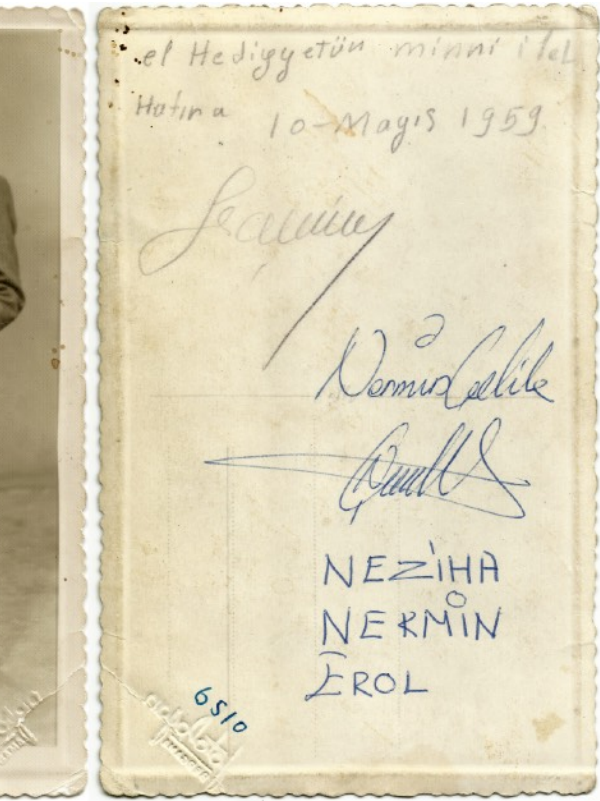 el Hediyyetün minni ilel
Hatıra 10-Mayıs 1959
Nermin Çelik
NEZİHA
NERMİN
EROL
6510